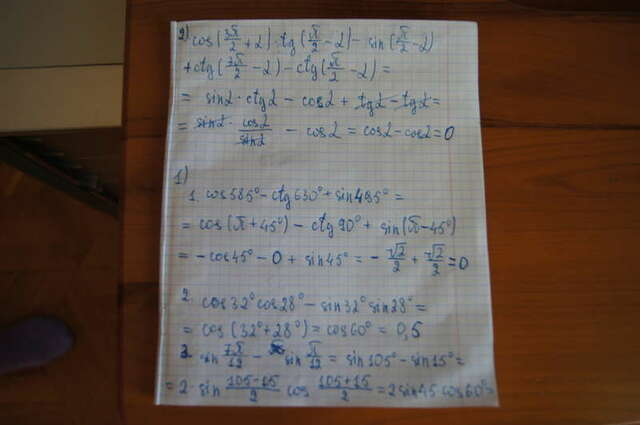 2) cos(3π/2 + α) · tg(π/2 - α) - sin(π/2 - α)
+ ctg(3π/2 - α) - ctg(π/2 - α) =
= sinα · ctgα - cosα + tgα - tgα =
= sinα · cosα/sinα - cosα = cosα - cosα = 0
1)
1. cos585° - ctg630° + sin495° =
= cos(π + 45°) - ctg90° + sin(π - 45°)
= - cos45° - 0 + sin45° = - √2/2 + √2/2 = 0
2. cos32° cos28° - sin32° sin28° =
= cos(32° + 28°) = cos60° = 0,5
3. sin 7π/12 - sin π/12 = sin105° - sin15° =
= 2 · sin (105-15)/2 cos (105+15)/2 = 2sin45 cos60° =